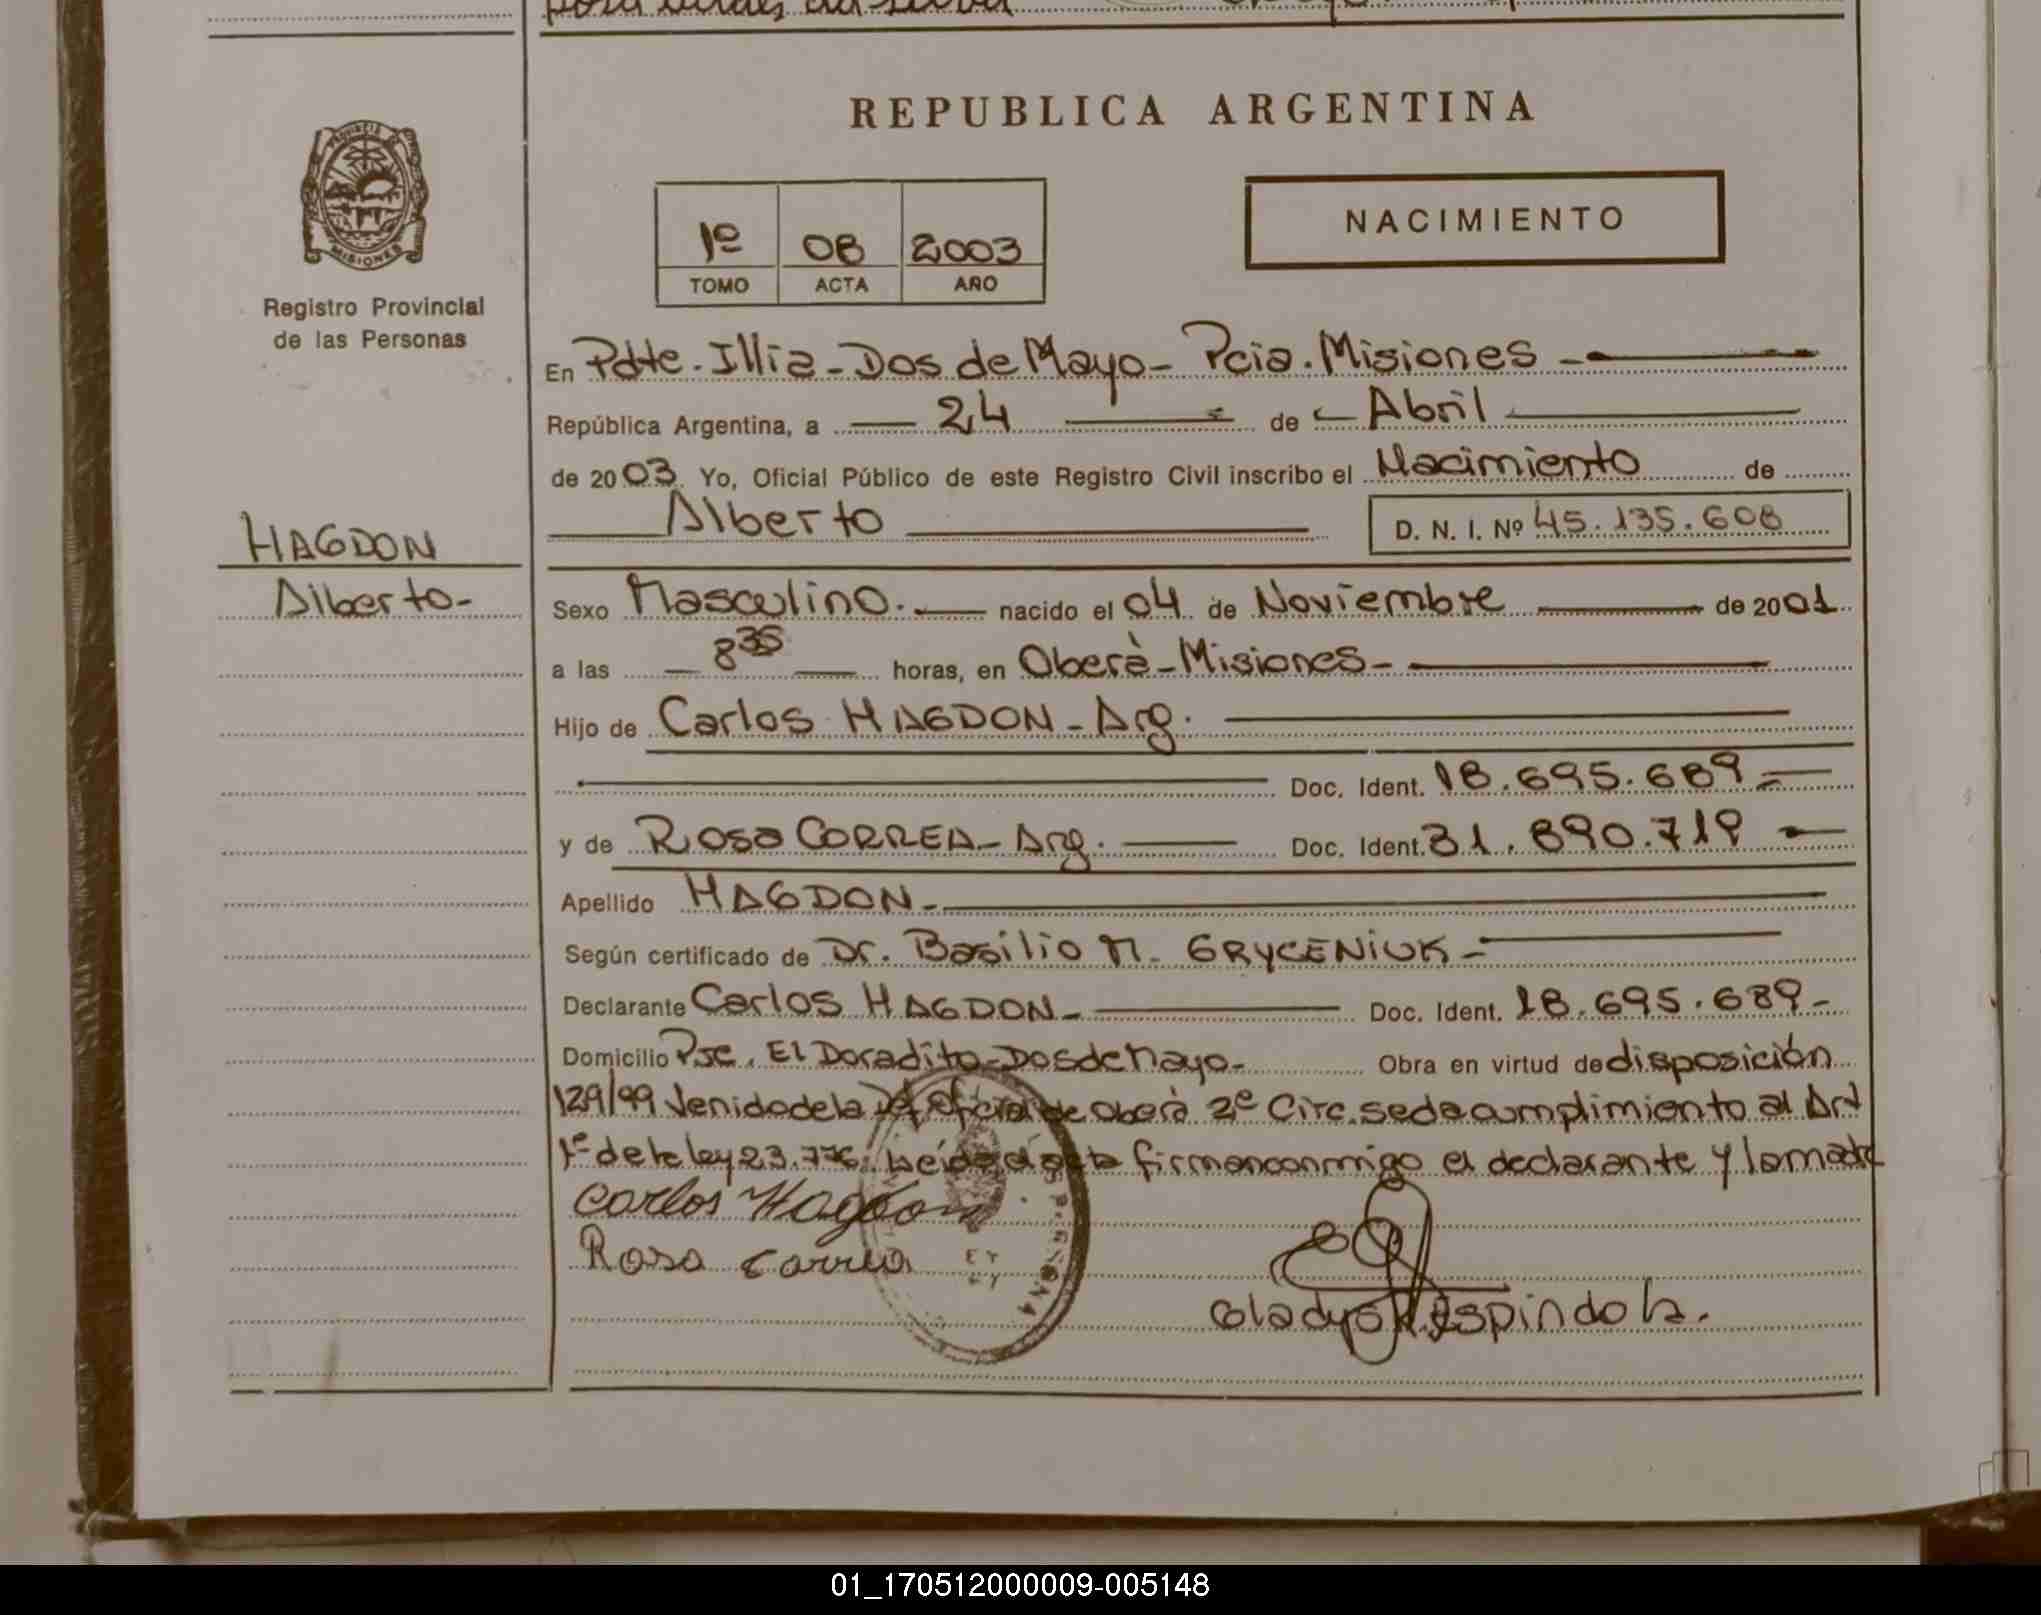 REPUBLICA ARGENTINA
PROVINCIA DE
MISIONES
Registro Provincial
de las Personas
1º 08 2003
TOMO ACTA AÑO
NACIMIENTO
En Pdte. Illia - Dos de Mayo - Pcia. Misiones -
República Argentina, a 24 de Abril
de 2003 Yo, Oficial Público de este Registro Civil inscribo el Nacimiento de
Alberto D. N. I. Nº 45.135.608
HAGDON
Alberto-
Sexo Masculino. nacido el 04 de Noviembre de 2001
a las 8 35 horas, en Oberà - Misiones -
Hijo de Carlos HAGDON - Arg.
Doc. Ident. 18.695.689
y de Rosa CORREA - Arg. Doc. Ident. 31.890.719
Apellido HAGDON -
Según certificado de Dr. Basilio M. GRYCENIUK -
Declarante Carlos HAGDON - Doc. Ident. 18.695.689 -
Domicilio Pje. El Doradito - Dos de Mayo - Obra en virtud de disposición
129/99 Venido de la Def Oficial de Oberà 2º Circ. se da cumplimiento al Art
1º de la ley 23.776. Leída el acta firman conmigo el declarante y la madre
Carlos Hagdon
Rosa Correa
Gladys Espindola.
01_170512000009-005148